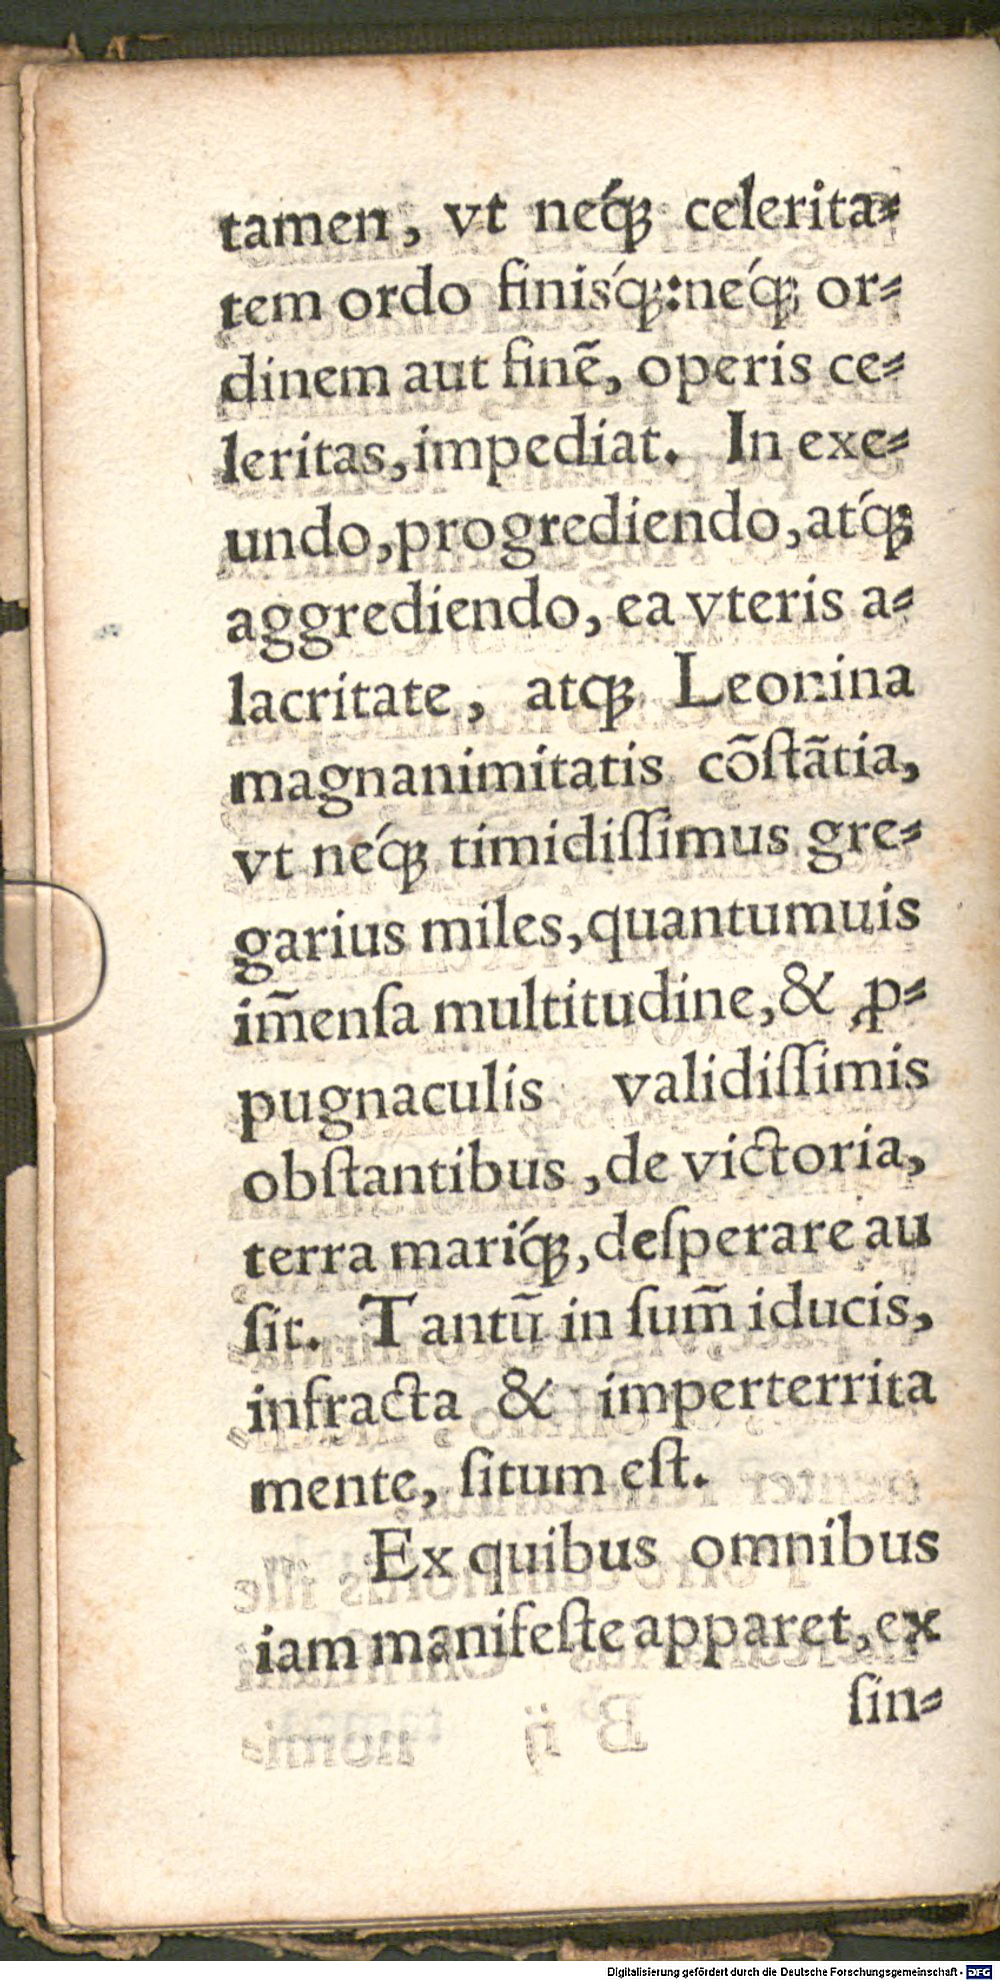 tamen, vt neq́ꝫ celerita⸗
tem ordo finisq́ꝫ:neq́ꝫ or⸗
dinem aut finẽ, operis ce⸗
leritas, impediat. In exe⸗
undo, progrediendo, atq́ꝫ
aggrediendo, ea vteris a⸗
lacritate, atqꝫ Leonina
magnanimitatis cõſtãtia,
vt neq́ꝫ timidiſſimus gre⸗
garius miles, quantumuis
im̃enſa multitudine, & ꝓ⸗
pugnaculis validiſſimis
obſtantibus, de victoria,
terra mariq́ꝫ, deſperare au
ſit. Tantũ in ſum̃ iducis,
infracta & imperterrita
mente, ſitum eſt.
Ex quibus omnibus
iam manifeſte apparet, ex
ſin⸗
Digitalisierung gefördert durch die Deutsche Forschungsgemeinschaft - DFG